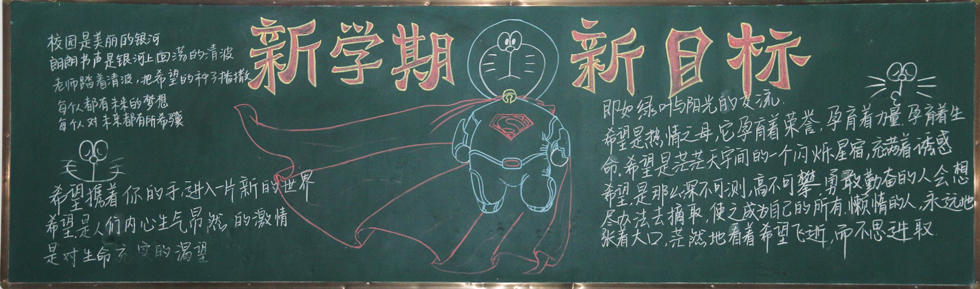 新学期 新目标
校园是美丽的银河
朗朗书声是银河上回荡的清波
老师踏着清波,把希望的种子播撒
每个人都有未来的梦想
每个人对未来都有所希冀
希望携着你的手,进入一片新的世界
希望是人们内心生气昂然的激情
是对生命充实的渴望
S
即如绿叶与阳光的交流.
希望是热情之母,它孕育着荣誉,孕育着力量,孕育着生
命.希望是茫茫天宇间的一个闪烁星宿,充满着诱惑
希望是那么深不可测,高不可攀.勇敢勤奋的人会想
尽办法去摘取,使之成为自己的所有.懒惰的人,永远地
张着大口,茫然地看着希望飞逝,而不思进取